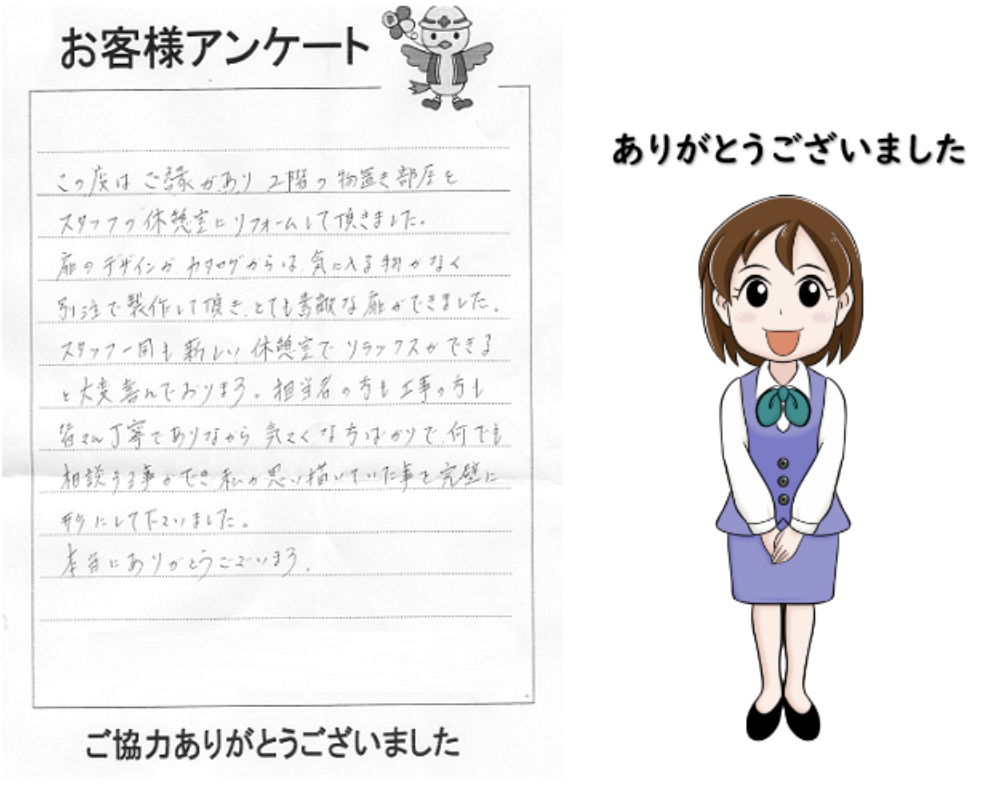 お客様アンケート
この度はご縁があり 2階の物置き部屋を
スタッフの休憩室にリフォームして頂きました。
扉のデザインが、カタログからは、気に入る物がなく
別注で製作して頂き、とても素敵な扉ができました。
スタッフ一同も新しい休憩室でリラックスができる
と大変喜んでおります。担当者の方も工事の方も
皆さん丁寧でありながら 気さくな方ばかりで、何でも
相談する事ができ 私が思い描いていた事を完璧に
形にして下さいました。
本当にありがとうございます。
ご協力ありがとうございました
ありがとうございました